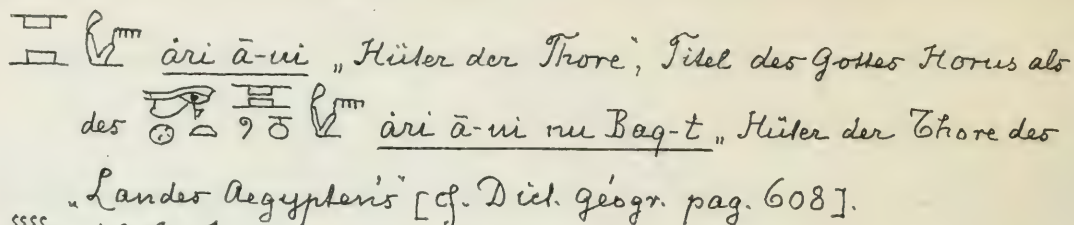 ȧri ā-ui „Hüter der Thore“, Titel des Gottes Horus als
des ȧri ā-ui nu Baq-t „Hüter der Thore des
„Landes Aegyptens“ [cf. Dict. géogr. pag. 608].